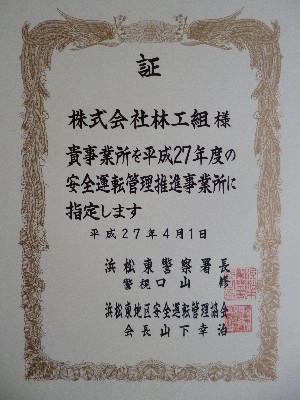 証
株式会社林工組 様
貴事業所を平成27年度の
安全運転管理推進事業所に
指定します
平成27年4月1日
浜松東警察署長
警視 口山 修
浜松東地区安全運転管理協会
会長 山下幸治